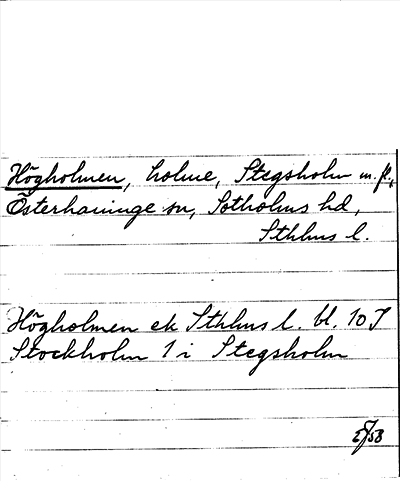 Högholmen, holme, Stegsholm m. fl.,
Österhaninge sn, Sotholms hd,
Sthlms l.
Högholmen ek Sthlms l. bl. 10J
Stockholm 1 i Stegsholm